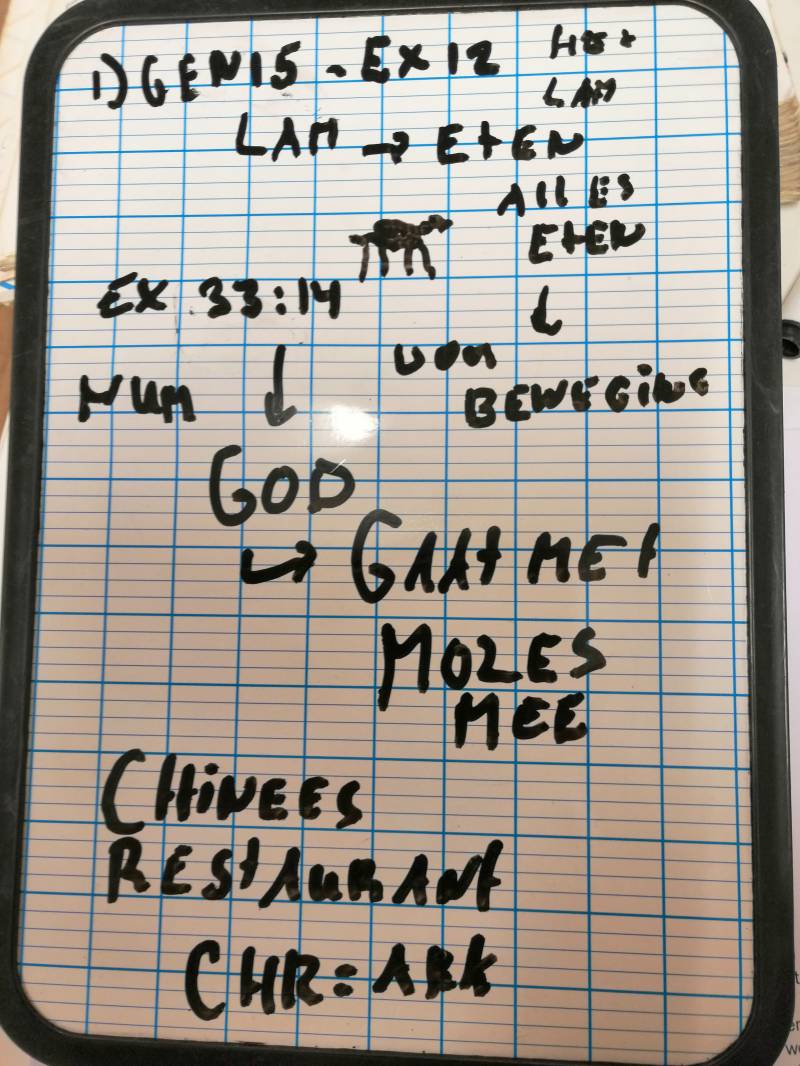 1) GEN 15 - EX 12
HET
LAM
LAM → ETEN
ALLES
ETEN
↓
EX 33:14
VOOR
BEWEGING
NUM
↓
GOD
↳ GAAT MET
MOZES
MEE
CHINEES
RESTAURANT
CHR = ARK